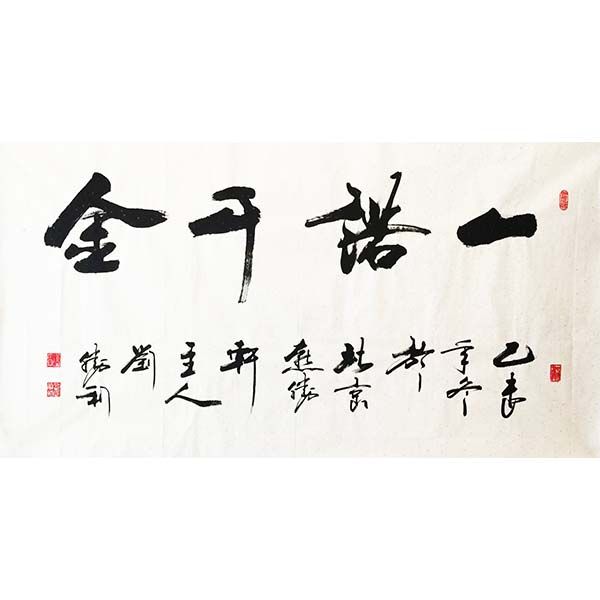 一諾千金
乙未年冬於北京勝軒主人劉勝利